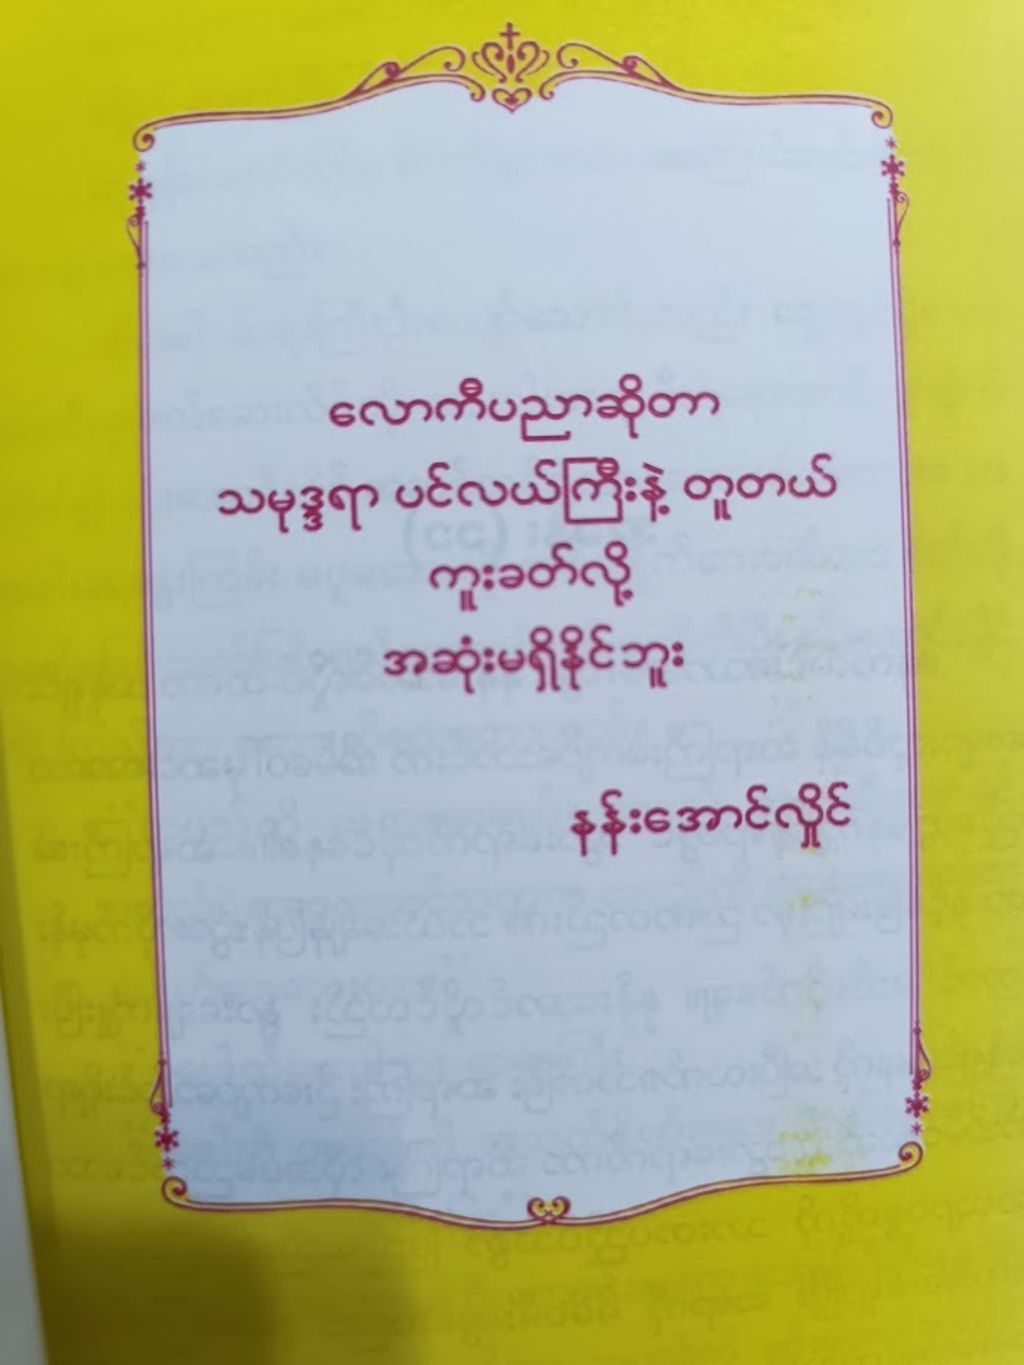 လောကီပညာဆိုတာ
သမုဒ္ဒရာ ပင်လယ်ကြီးနဲ့ တူတယ်
ကူးခတ်လို့
အဆုံးမရှိနိုင်ဘူး
နန်းအောင်လှိုင်